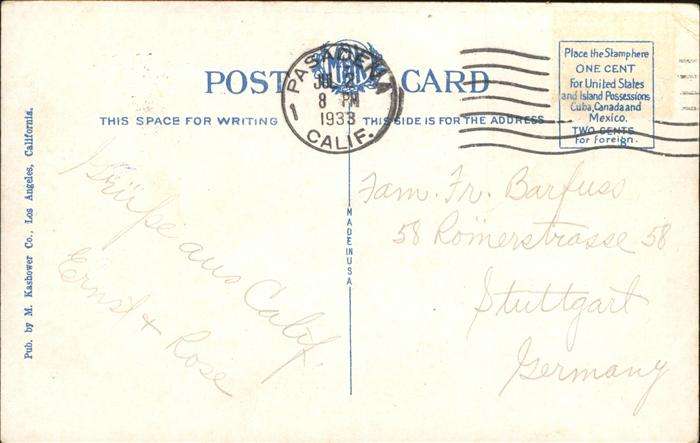 POST CARD
PASADENA
1
JUL 2
8 PM
1933
CALIF.
THIS SPACE FOR WRITING
THIS SIDE IS FOR THE ADDRESS
Place the Stamp here
ONE CENT
For United States
and Island Possessions
Cuba, Canada and
Mexico.
TWO CENTS
for foreign.
Pub. by M. Kashower Co., Los Angeles, California.
MADE IN USA
Grüße aus Calif.
Ernst + Rose
Fam. Fr. Barfuss
58 Römerstrasse 58
Stuttgart
Germany